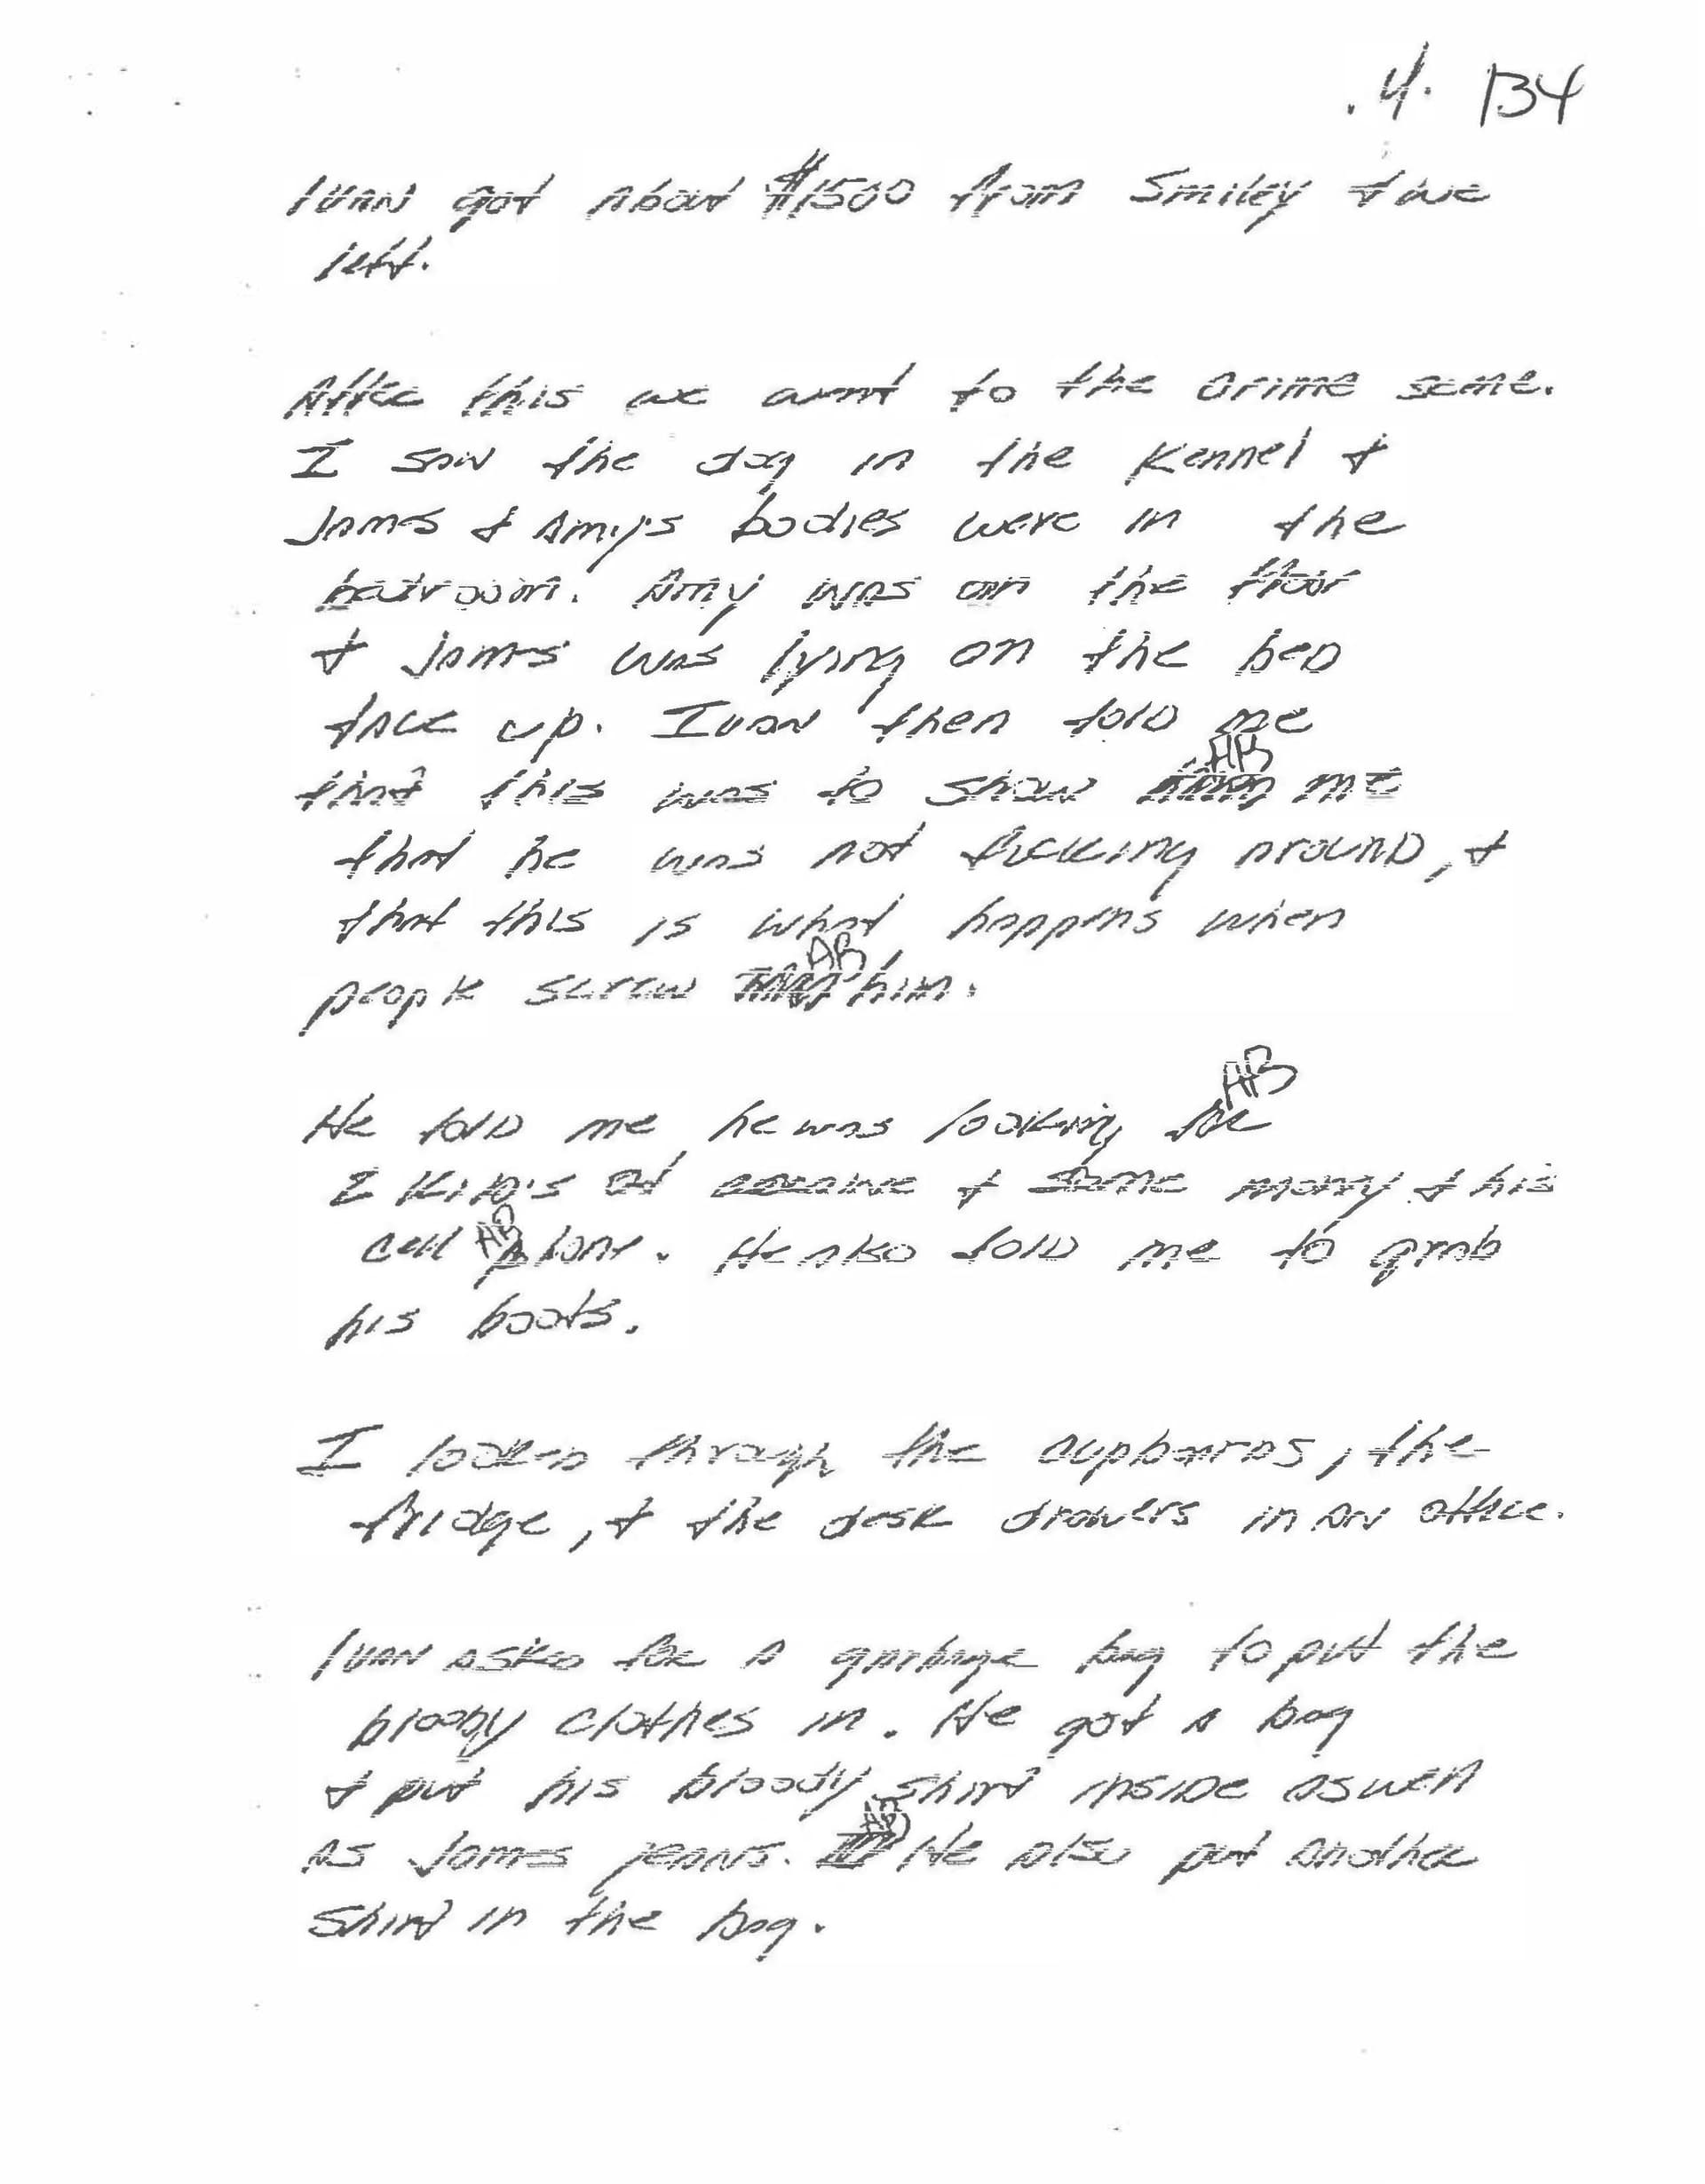 .4. 134
IVAN got About $1500 from Smiley & we
left.
After this we went to the crime scene.
I saw the dog in the Kennel &
James & Amy's bodies were in the
bedroom. Amy was on the floor
& James was lying on the beD
face up. IVAN then tolD me
AB
that this was to show me
that he was not fucking arounD, &
that this is what happens when
AB
people screw him.
AB
He tolD me he was looking for
2 Kilo's of cocaine & some money & his
AB
cell phone. He also tolD me to grab
his boots.
I lookeD through the cupboarDs, the
fridge, & the desk drawers in AN office.
IVAN askeD for A garbage bag to put the
bloody clothes in. He got A bag
& put his bloody shirt insiDe as well
AB
as James jeans. He also put another
Shirt in the bag.